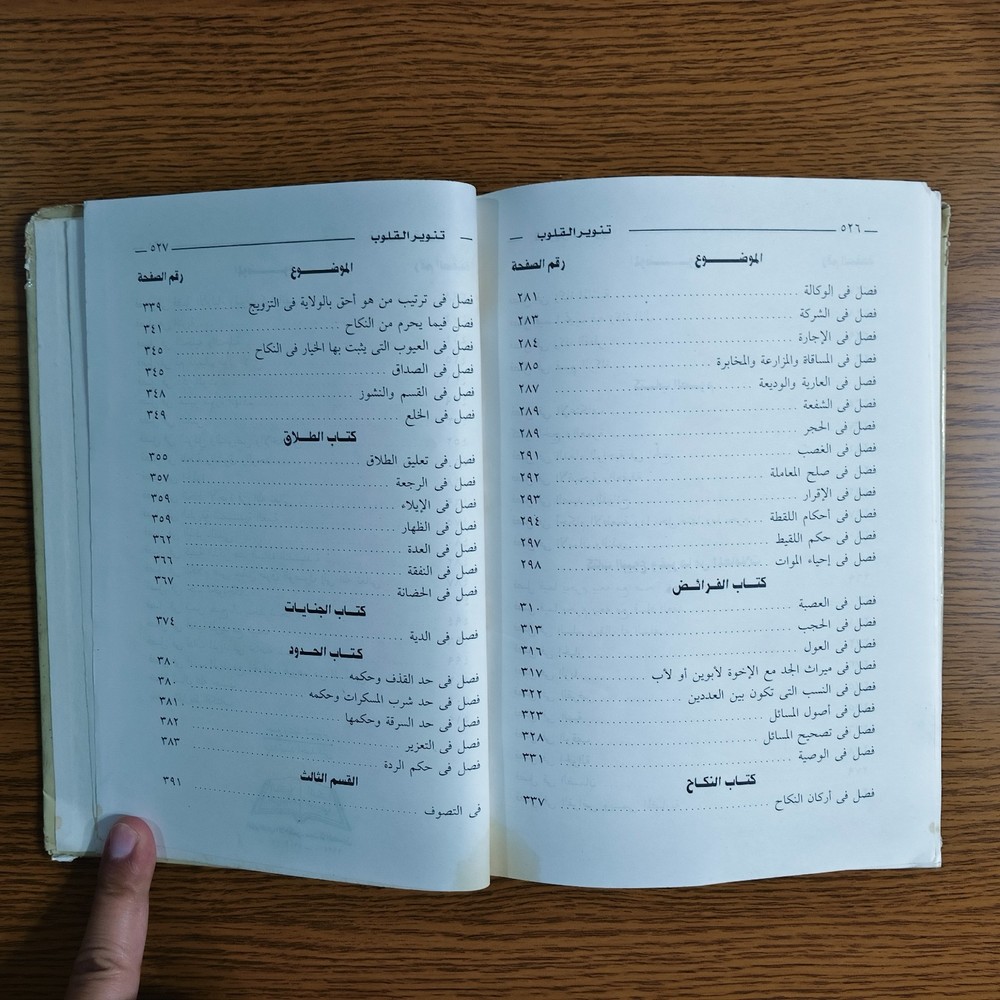 ٥٢٦ تنوير القلوب
الموضوع رقم الصفحة
فصل فى الوكالة ٢٨١
فصل فى الشركة ٢٨٣
فصل فى الإجارة ٢٨٤
فصل فى المساقاة والمزارعة والمخابرة ٢٨٥
فصل فى العارية والوديعة ٢٨٧
فصل فى الشفعة ٢٨٩
فصل فى الحجر ٢٨٩
فصل فى الغصب ٢٩١
فصل فى صلح المعاملة ٢٩٢
فصل فى الإقرار ٢٩٣
فصل فى أحكام اللقطة ٢٩٤
فصل فى حكم اللقيط ٢٩٧
فصل فى إحياء الموات ٢٩٨
كتاب الفرائض
فصل فى العصبة ٣١٠
فصل فى الحجب ٣١٣
فصل فى العول ٣١٦
فصل فى ميراث الجد مع الإخوة لأبوين أو لأب ٣١٧
فصل فى النسب التى تكون بين العددين ٣٢٢
فصل فى أصول المسائل ٣٢٣
فصل فى تصحيح المسائل ٣٢٨
فصل فى الوصية ٣٣١
كتاب النكاح
فصل فى أركان النكاح ٣٣٧
تنوير القلوب ٥٢٧
الموضوع رقم الصفحة
فصل فى ترتيب من هو أحق بالولاية فى التزويج ٣٣٩
فصل فيما يحرم من النكاح ٣٤١
فصل فى العيوب التى يثبت بها الخيار فى النكاح ٣٤٥
فصل فى الصداق ٣٤٥
فصل فى القسم والنشوز ٣٤٨
فصل فى الخلع ٣٤٩
كتاب الطلاق
فصل فى تعليق الطلاق ٣٥٥
فصل فى الرجعة ٣٥٧
فصل فى الإيلاء ٣٥٩
فصل فى الظهار ٣٥٩
فصل فى العدة ٣٦٢
فصل فى النفقة ٣٦٦
فصل فى الحضانة ٣٦٧
كتاب الجنايات
فصل فى الدية ٣٧٤
كتاب الحدود
فصل فى حد القذف وحكمه ٣٨٠
فصل فى حد شرب المسكرات وحكمه ٣٨٠
فصل فى حد السرقة وحكمها ٣٨١
فصل فى التعزير ٣٨٢
فصل فى حكم الردة ٣٨٣
القسم الثالث
فى التصوف ٣٩١